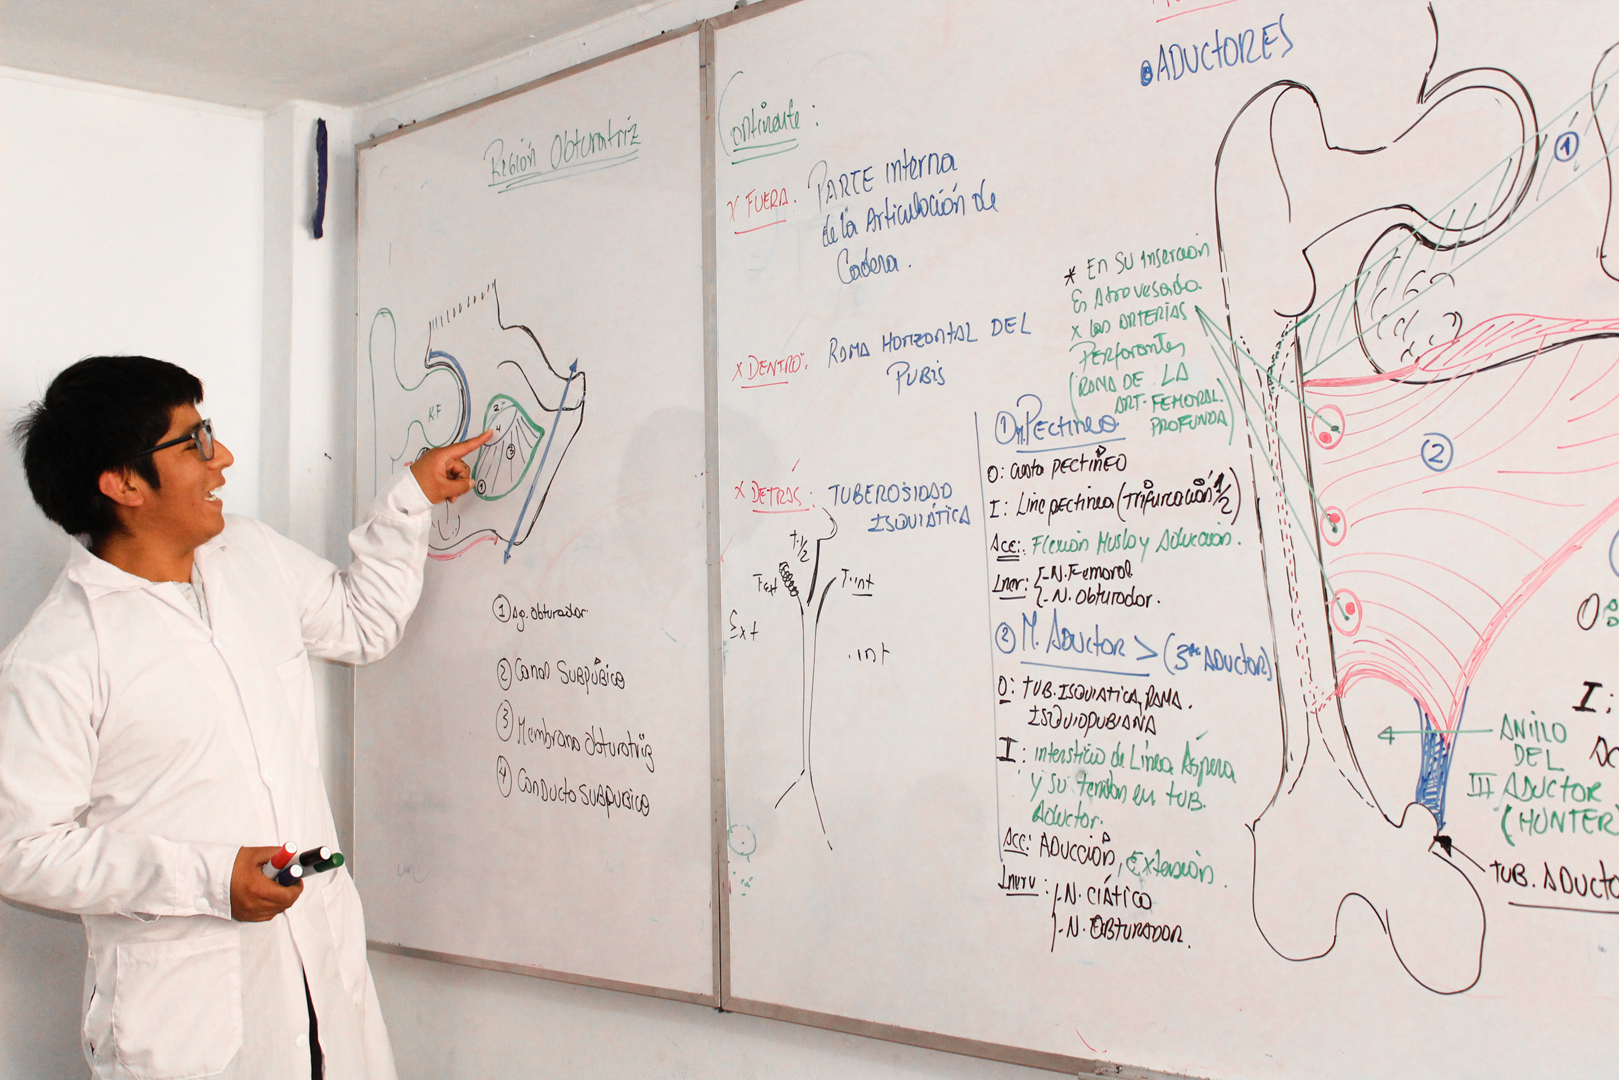 Región Obturatriz
KF
2
4
3
1
① Ag. obturador
② Canal Subpúbico
③ Membrana obturatriz
④ Conducto Subpubico
Continente :
x FUERA. PARTE interna
de la Articulación de
Cadera.
x DENTRO: RAMA HORIZONTAL DEL
PUBIS
x DETRAS: TUBEROSIDAD
ISQUIÁTICA
T. 1/2
T Ext
T. int
Ext
. int
ADUCTORES
* EN SU Inserción
Es Atravesado
x las ARTERIAS
Perforantes
(RAMA DE LA
ART. FEMORAL
PROFUNDA)
① M. Pectineo
O: Cresta PECTINEO
I: Line pectinea (Trifurcación 1/2)
Acc: Flexion Muslo y Aducción.
Iner: - N. Femoral
- N. Obturador.
② M. ADUCTOR > (3er ADUCTOR)
O: TUB. ISQUIATICA, RAMA.
ISQUIOPUBIANA
I: intersticio de Línea Áspera
y su tendon en TUB.
Aductor.
Acc: ADUCCIÓN, Extensión.
Inerv: - N. CIÁTICO
- N. OBTURADOR.
1
2
ANILLO
DEL
III ADUCTOR
(HUNTER
TUB. ADUCTO
O
I: